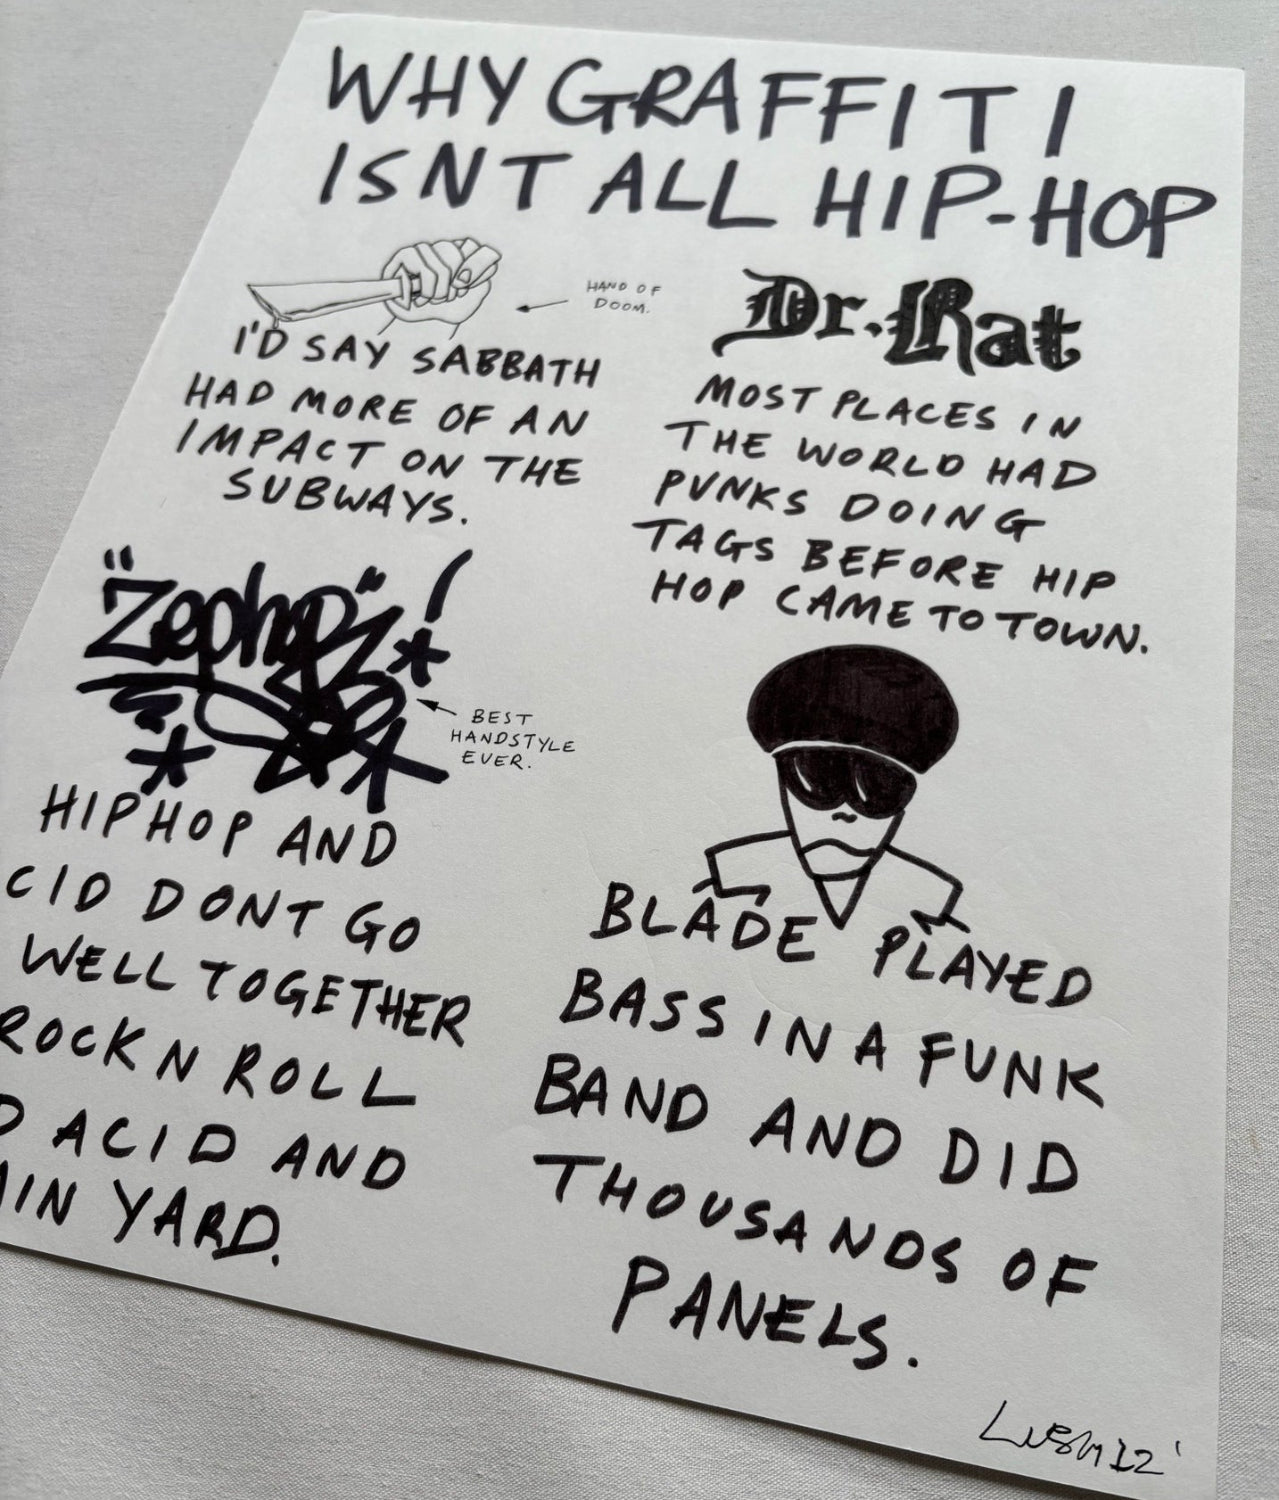 WHY GRAFFITI
ISNT ALL HIP-HOP
HAND OF
DOOM.
I'D SAY SABBATH
HAD MORE OF AN
IMPACT ON THE
SUBWAYS.
Dr. Rat
MOST PLACES IN
THE WORLD HAD
PUNKS DOING
TAGS BEFORE HIP
HOP CAME TO TOWN.
"Zephyr"!
BEST
HANDSTYLE
EVER.
HIPHOP AND
CID DONT GO
WELL TOGETHER
ROCK N ROLL
ACID AND
YARD.
BLADE PLAYED
BASS IN A FUNK
BAND AND DID
THOUSANDS OF
PANELS.
LUSH 12'